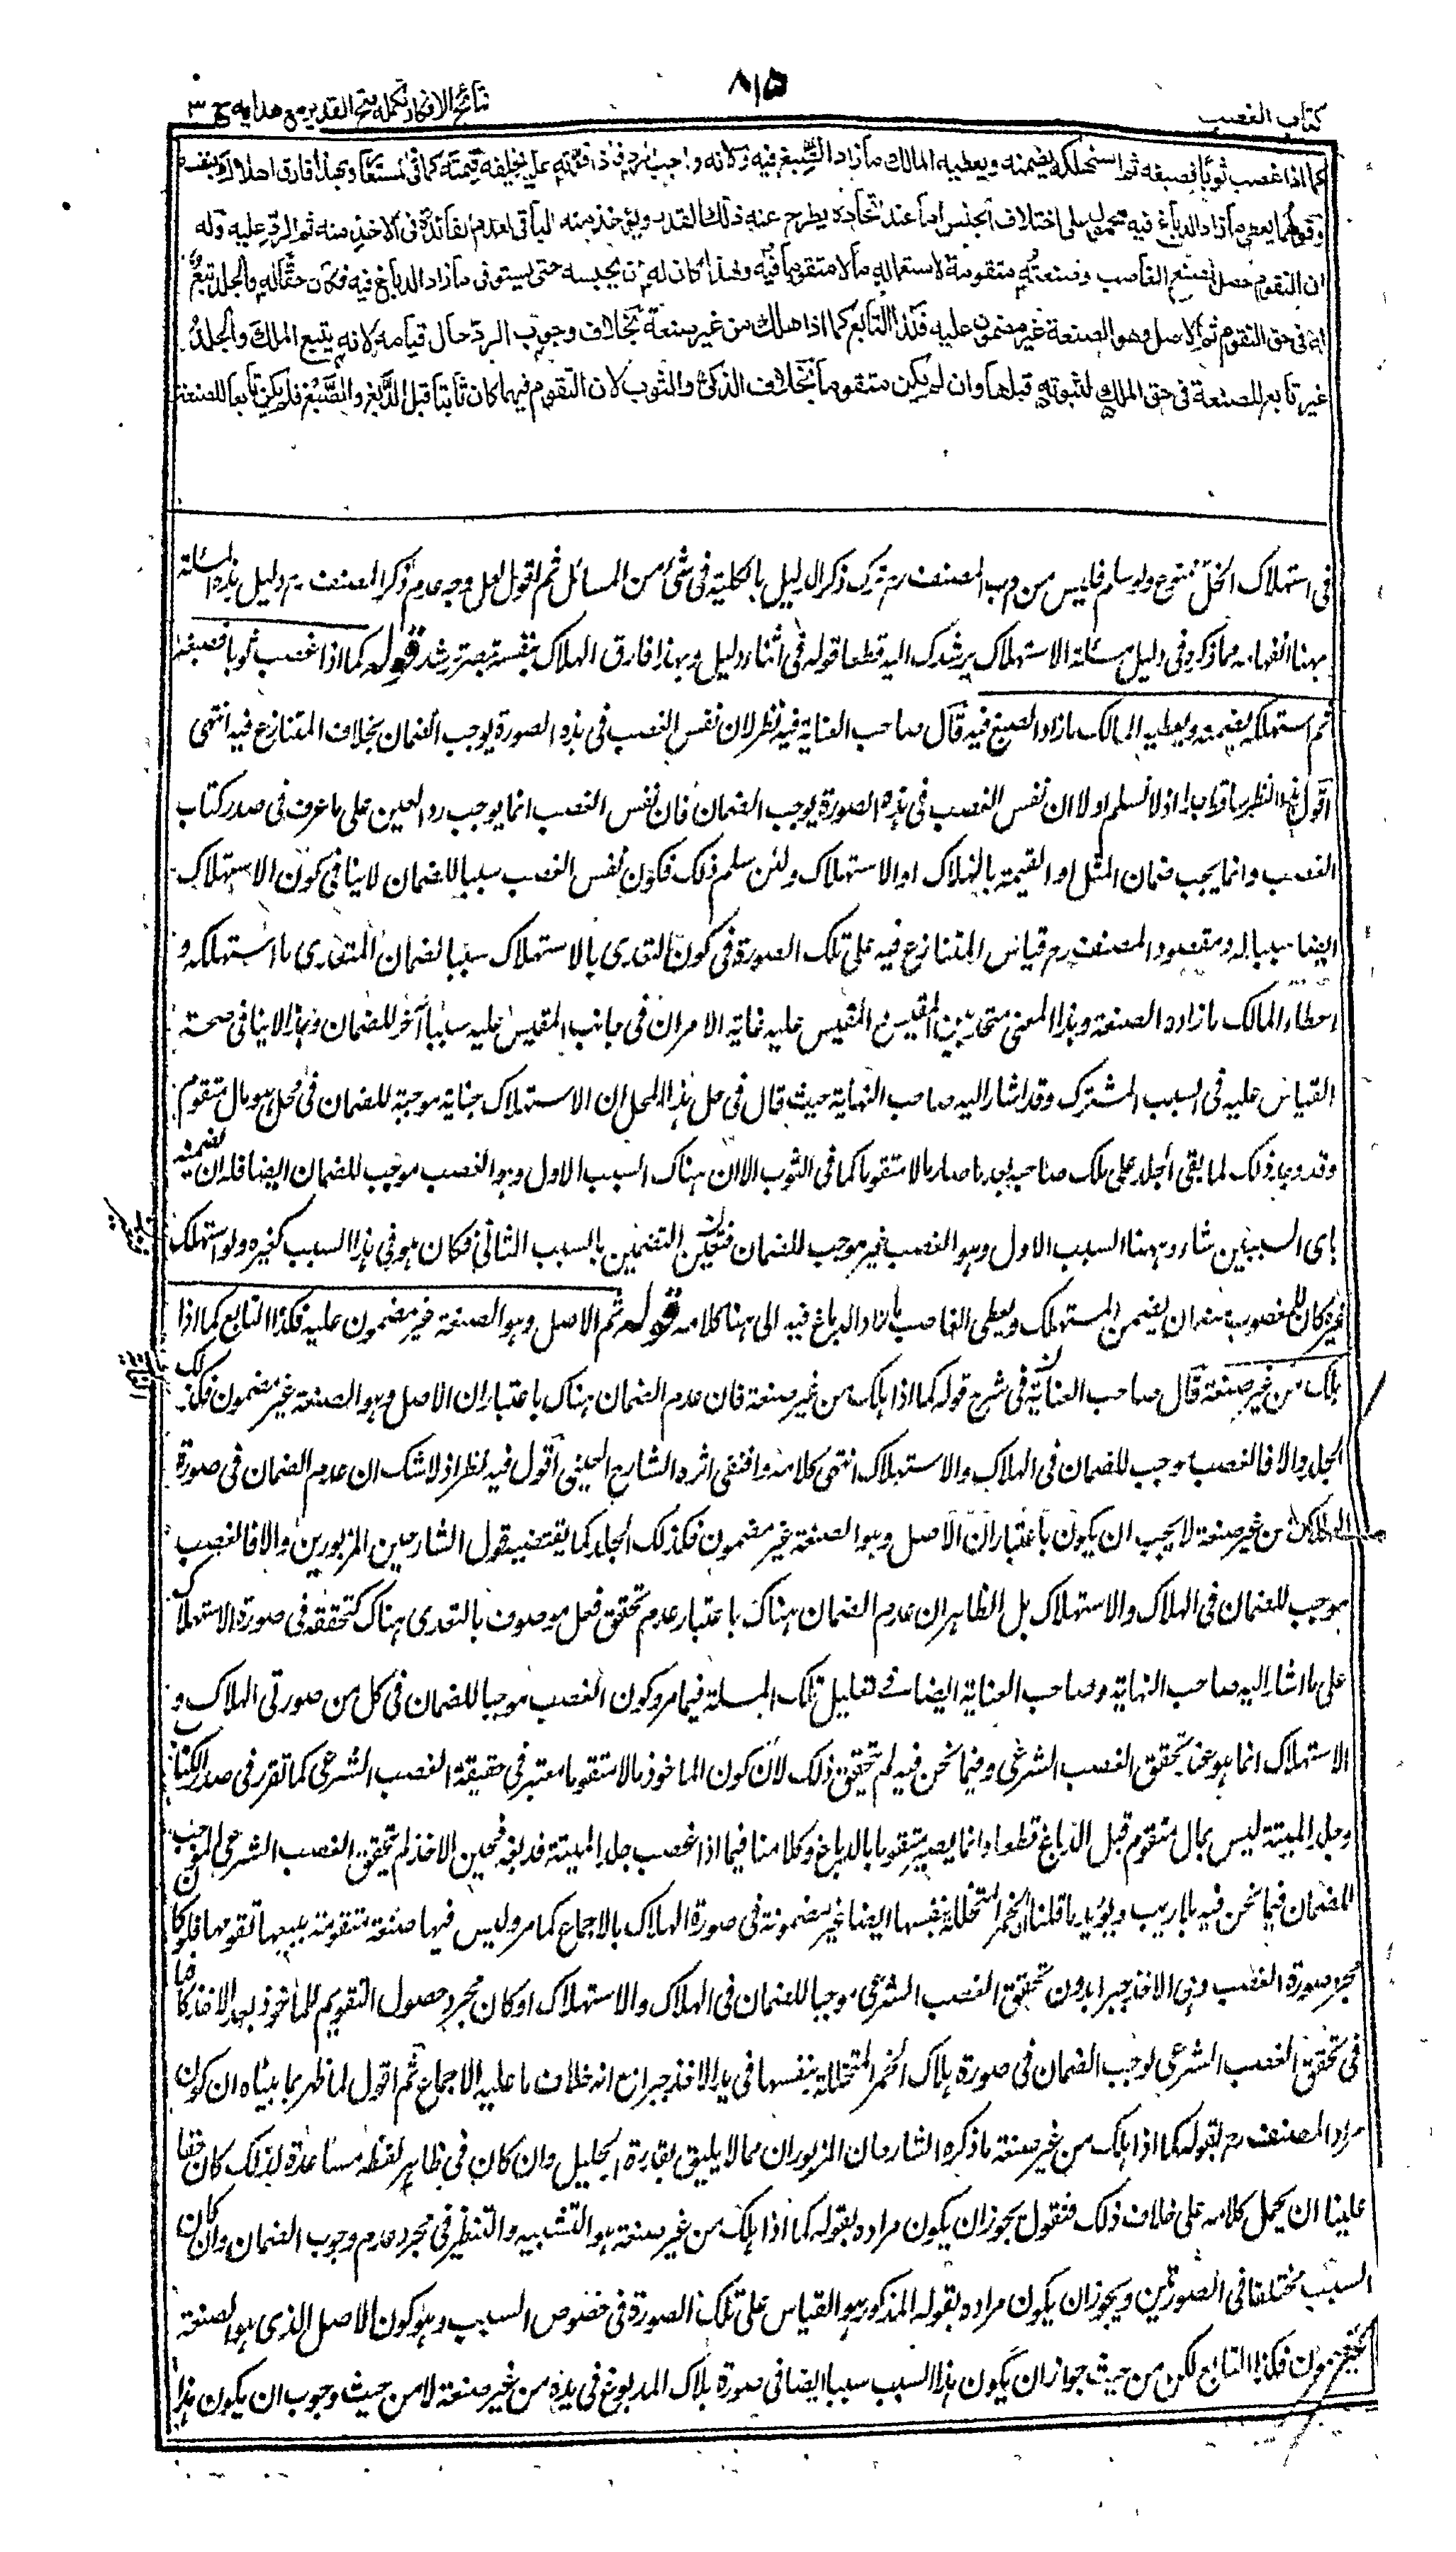 كتاب الغصب
٨١٥
نتائج الافكار تكمله فتح القدير مع هدايه ج ٣
كما اذا غصب ثوبا فصبغه ثم استهلكه يضمنه ويعطيه المالك ما زاد الصبغ فيه ولانه واجب الرد فاذا فوته عليه يخلفه قيمته كما في المستعار وبهذا فارق الهلاك بنفسه
وقولهما يعطي ما زاد الدباغ فيه محمول على اختلاف الجنس اما عند اتحاده يطرح عنه ذلك القدر ويؤخذ منه الباقي لعدم الفائدة في الاخذ منه ثم الرد عليه وله
ان التقوم حصل بصنع الغاصب وصنعته متقومة لاستعماله مالا متقوما فيه ولهذا كان له ان يحبسه حتى يستوفى ما زاد الدباغ فيه فكان حقا له والجلد تبع
له في حق التقوم ثم الاصل وهو الصنعة غير مضمون عليه فكذا التابع كما اذا هلك من غير صنعة بخلاف وجوب الرد حال قيامه لانه يتبع الملك والجلد
غير تابع للصنعة في حق الملك لثبوته قبلها وان لم يكن متقوما بخلاف الذكي والثوب لان التقوم فيهما كان ثابتا قبل الدبغ والصبغ فلم يكن تابعا للصنعة
في استهلاك الخل ممنوع ولو سلم فليس من دب المصنف رح ترك ذكر الدليل بالكلية في شئ من المسائل ثم اقول لعل وجه عدم ذكر المصنف رح دليل هذه المسئلة
ههنا انفهامه مما ذكره في دليل مسئلة الاستهلاك يرشدك اليه قطعا قوله في اثناء دليله وبهذا فارق الهلاك بنفسه تبصر ترشد قوله كما اذا غصب ثوبا فصبغه
ثم استهلكه يضمنه ويعطيه المالك ما زاد الصبغ فيه قال صاحب العناية فيه نظر لان نفس الغصب في هذه الصورة يوجب الضمان بخلاف المتنازع فيه انتهى
اقول هذا النظر ساقط جدا اذ لا نسلم اولا ان نفس الغصب في هذه الصورة يوجب الضمان فان نفس الغصب انما يوجب رد العين على ما عرف في صدر كتاب
الغصب وانما يجب ضمان المثل او القيمة بالهلاك او الاستهلاك ولئن سلم ذلك فكون نفس الغصب سببا للضمان لا ينافي كون الاستهلاك
ايضا سببا له ومقصود المصنف رح قياس المتنازع فيه على تلك الصورة في كون التعدي بالاستهلاك سببا لضمان المتعدي ما استهلكه و
اعطاء المالك ما زاده الصنعة وهذا المعنى متحد بين المقيس والمقيس عليه غاية الامر ان في جانب المقيس عليه سببا آخر للضمان وهذا لا ينافي صحة
القياس عليه في السبب المشترك وقد اشار اليه صاحب النهاية حيث قال في حل هذا المحل ان الاستهلاك جناية موجبة للضمان في محل هو مال متقوم
وقد وجد ذلك لما بقي الجلد على ملك صاحبه بعد ما صار مالا متقوما كما في الثوب الا ان هناك السبب الاول وهو الغصب موجب للضمان ايضا فله ان يضمنه
باي السببين شاء وههنا السبب الاول وهو الغصب غير موجب للضمان فتعين التضمين بالسبب الثاني فكان هو في هذا السبب كغيره ولو استهلك
غيره كان للمغصوب منه ان يضمن المستهلك ويعطى الغاصب ما زاد الدباغ فيه الى هنا كلامه قوله ثم الاصل وهو الصنعة غير مضمون عليه فكذا التابع كما اذا
هلك من غير صنعة قال صاحب العناية في شرح قوله كما اذا هلك من غير صنعة فان عدم الضمان هناك باعتبار ان الاصل وهو الصنعة غير مضمون فكذلك
الجلد والا فالغصب موجب للضمان في الهلاك والاستهلاك انتهى كلامه واقتفى اثره الشارح العيني اقول فيه نظر اذ لا شك ان عدم الضمان في صورة
الهلاك من غير صنعة لا يجب ان يكون باعتبار ان الاصل وهو الصنعة غير مضمون فكذلك الجلد كما يقتضيه قول الشارحين المزبورين والا فالغصب
موجب للضمان في الهلاك والاستهلاك بل الظاهر ان عدم الضمان هناك باعتبار عدم تحقق فعل موصوف بالتعدي هناك كتحققه في صورة الاستهلاك
على ما اشار اليه صاحب النهاية وصاحب العناية ايضا في تعليل تلك المسئلة فيما مر وكون الغصب موجبا للضمان في كل من صورتي الهلاك و
الاستهلاك انما هو عند تحقق الغصب الشرعي وفيما نحن فيه لم يتحقق ذلك لان كون الماخوذ مالا متقوما معتبر في حقيقة الغصب الشرعي كما تقرر في صدر الكتاب
وجلد الميتة ليس بمال متقوم قبل الدباغ قطعا وانما يصير متقوما بالدباغ وكلامنا فيما اذا غصب جلد الميتة فدبغه فحين الاخذ لم يتحقق الغصب الشرعي الموجب
للضمان فيما نحن فيه بلا ريب ويؤيد ما قلنا ان الخمر المتخللة بنفسها ايضا غير مضمونة في صورة الهلاك بالاجماع كما مر وليس فيها صنعة متقومة يتبعها تقومها فلو كان
مجرد صورة الغصب وهي الاخذ جبرا بدون تحقق الغصب الشرعي موجبا للضمان في الهلاك والاستهلاك او كان مجرد حصول التقوم للماخوذ بعد الاخذ كافيا
في تحقق الغصب الشرعي لوجب الضمان في صورة هلاك الخمر المتخللة بنفسها في يد الاخذ جبرا مع انه خلاف ما عليه الاجماع ثم اقول لما ظهر بما بيناه ان كون
مراد المصنف رح بقوله كما اذا هلك من غير صنعة ما ذكره الشارحان المزبوران مما لا يليق بقدره الجليل وان كان في ظاهر لفظه مساعدة لذلك كان حقا
علينا ان يحمل كلامه على خلاف ذلك فنقول يجوز ان يكون مراده بقوله كما اذا هلك من غير صنعة هو التشبيه والتنظير في مجرد عدم وجوب الضمان وان كان
السبب مختلفا في الصورتين ويجوز ان يكون مراده بقوله المذكور هو القياس على تلك الصورة في خصوص السبب وهو كون الاصل الذي هو الصنعة
غير مضمون فكذا التابع لكن من حيث جواز ان يكون هذا السبب سببا ايضا في صورة هلاك المدبوغ في يده من غير صنعة لا من حيث وجوب ان يكون هذا